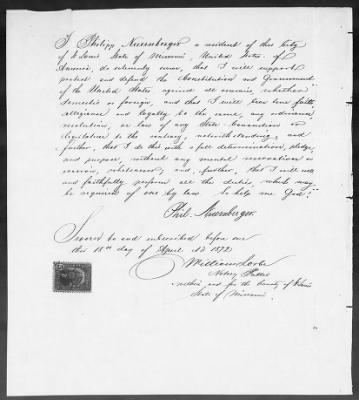 I Philipp Nuernberger a resident of this City
of St Louis State of Missouri, United States of
America, do solemnly swear, that I will support
protect and defend the Constitution and Government
of the United States against all enemies, whether
domestic or foreign, and that I will bear true faith,
allegiance and loyalty to the same, any ordinance
resolution, or law of any State Convention or
legislature to the contrary, notwithstanding; and
further, that I do this with a full determination, pledge,
and purpose, without any mental reservation or
evasion, whatsoever; and, further, that I will well
and faithfully perform all the duties, which may
be required of me by law. So help me God!
Phil. Nuernberger.
Sworn to and subscribed before me
this 18th day of April A.D 1872
William
Notary Public
within and for the County of St Louis
State of Missouri